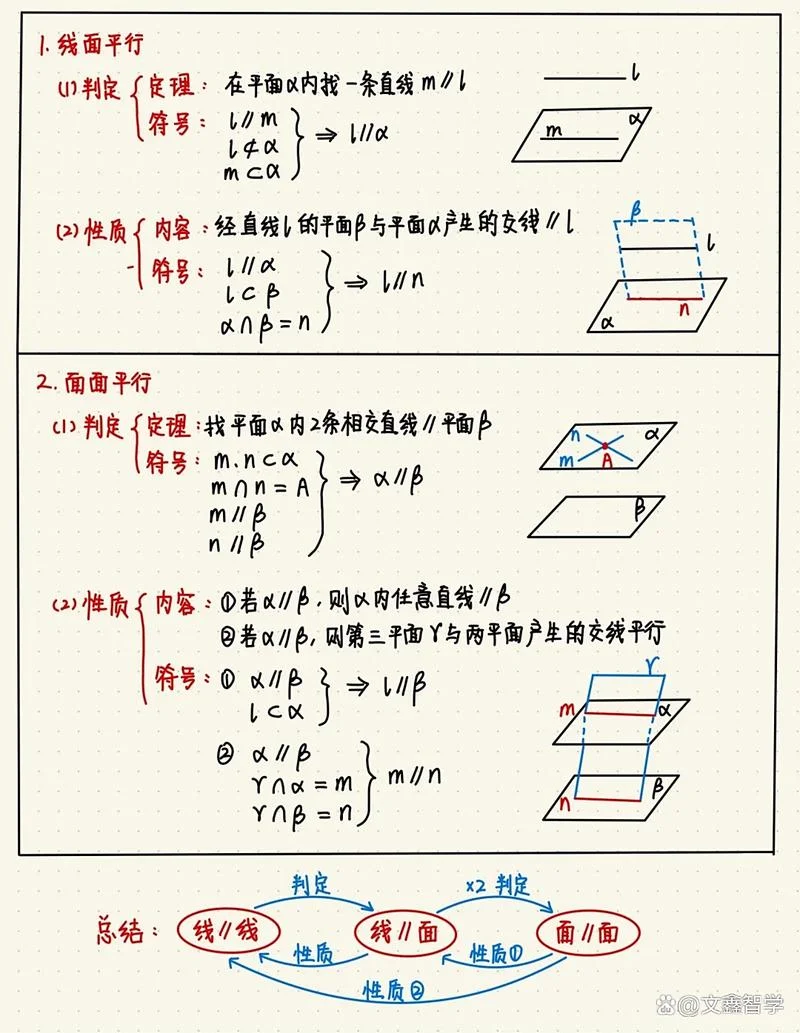 1. 线面平行
(1) 判定 { 定理: 在平面α内找一条直线m∥l
符号: l∥m
l⊄α
m⊂α } ⇒ l∥α
l
m α
(2) 性质 { 内容: 经直线l的平面β与平面α产生的交线∥l
符号: l∥α
l⊂β
α∩β=n } ⇒ l∥n
β
l
n
α
2. 面面平行
(1) 判定 { 定理: 找平面α内2条相交直线∥平面β
符号: m.n⊂α
m∩n=A
m∥β
n∥β } ⇒ α∥β
n α
m A
β
(2) 性质 { 内容: ①若α∥β,则α内任意直线∥β
②若α∥β,则第三平面γ与两平面产生的交线平行
符号: ① α∥β
l⊂α } ⇒ l∥β
② α∥β
γ∩α=m
γ∩β=n } m∥n
γ
m α
β
n
判定 ×2 判定
总结: 线∥线 线∥面 面∥面
性质 性质①
性质②
@文鑫智学